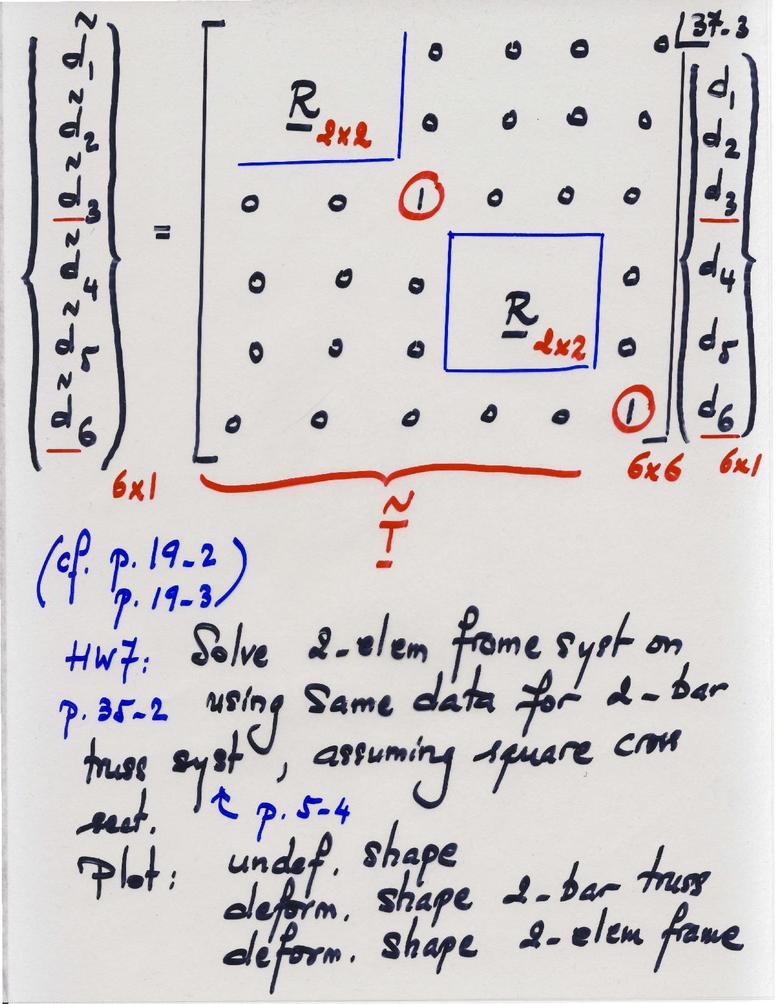 37-3
d̃1 R 2x2 0 0 0 0 d1
d̃2 0 0 0 0 d2
d̃3 0 0 1 0 0 0 d3
= 
d̃4 0 0 0 R 2x2 0 d4
d̃5 0 0 0 0 d5
d̃6 0 0 0 0 0 1 d6
6x1 6x6 6x1
T̃
(cf. p. 19-2
p. 19-3)
HW7: Solve 2-elem frame syst on
p. 35-2 using same data for 2-bar
truss syst, assuming square cross
sect. ↑ p. 5-4
Plot: undef. shape
deform. shape 2-bar truss
deform. shape 2-elem frame